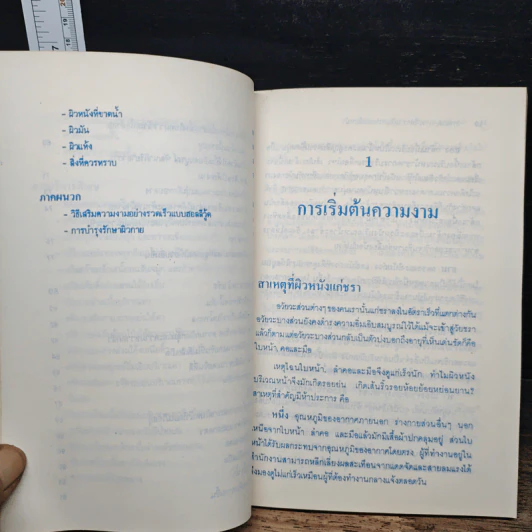 - ผิวหนังที่ขาดน้ำ
- ผิวมัน
- ผิวแห้ง
- สิ่งที่ควรทราบ
ภาคผนวก
- วิธีเสริมความงามอย่างรวดเร็วแบบฮอลลีวู้ด
- การบำรุงรักษาผิวกาย
1
การเริ่มต้นความงาม
สาเหตุที่ผิวหนังแก่ชรา
อวัยวะส่วนต่างๆ ของคนเรานั้นแก่ชราลงในอัตราเร็วที่แตกต่างกัน
อวัยวะบางส่วนยังคงดำรงความอิ่มเอิบสมบูรณ์ไว้ได้แม้จะเข้าสู่วัยชรา
แล้วก็ตาม แต่อวัยวะบางส่วนกลับเป็นตัวบ่งบอกถึงอายุที่เห็นเด่นชัดก็คือ
ใบหน้า คอและมือ
เหตุไฉนใบหน้า ลำคอและมือจึงดูแก่เร็วนัก ทำไมผิวหนัง
บริเวณหน้าจึงมักเกิดรอยย่น เกิดเส้นริ้วรอยห้อยย้อยหย่อนยาน?
สาเหตุที่สำคัญมีห้าประการ คือ
หนึ่ง อุณหภูมิของอากาศภายนอก ร่างกายส่วนอื่นๆ นอก
เหนือจากใบหน้า ลำคอ และมือแล้วมักมีเสื้อผ้าปกคลุมอยู่ ส่วนใบ
หน้าได้รับผลกระทบจากอุณหภูมิของอากาศโดยตรง ผู้ที่ทำงานอยู่ใน
สำนักงานสามารถหลีกเลี่ยงผลสะเทือนจากแดดจัดและสายลมแรงได้
จึงมองดูไม่แก่เร็วเหมือนผู้ที่ต้องทำงานกลางแจ้งตลอดวัน